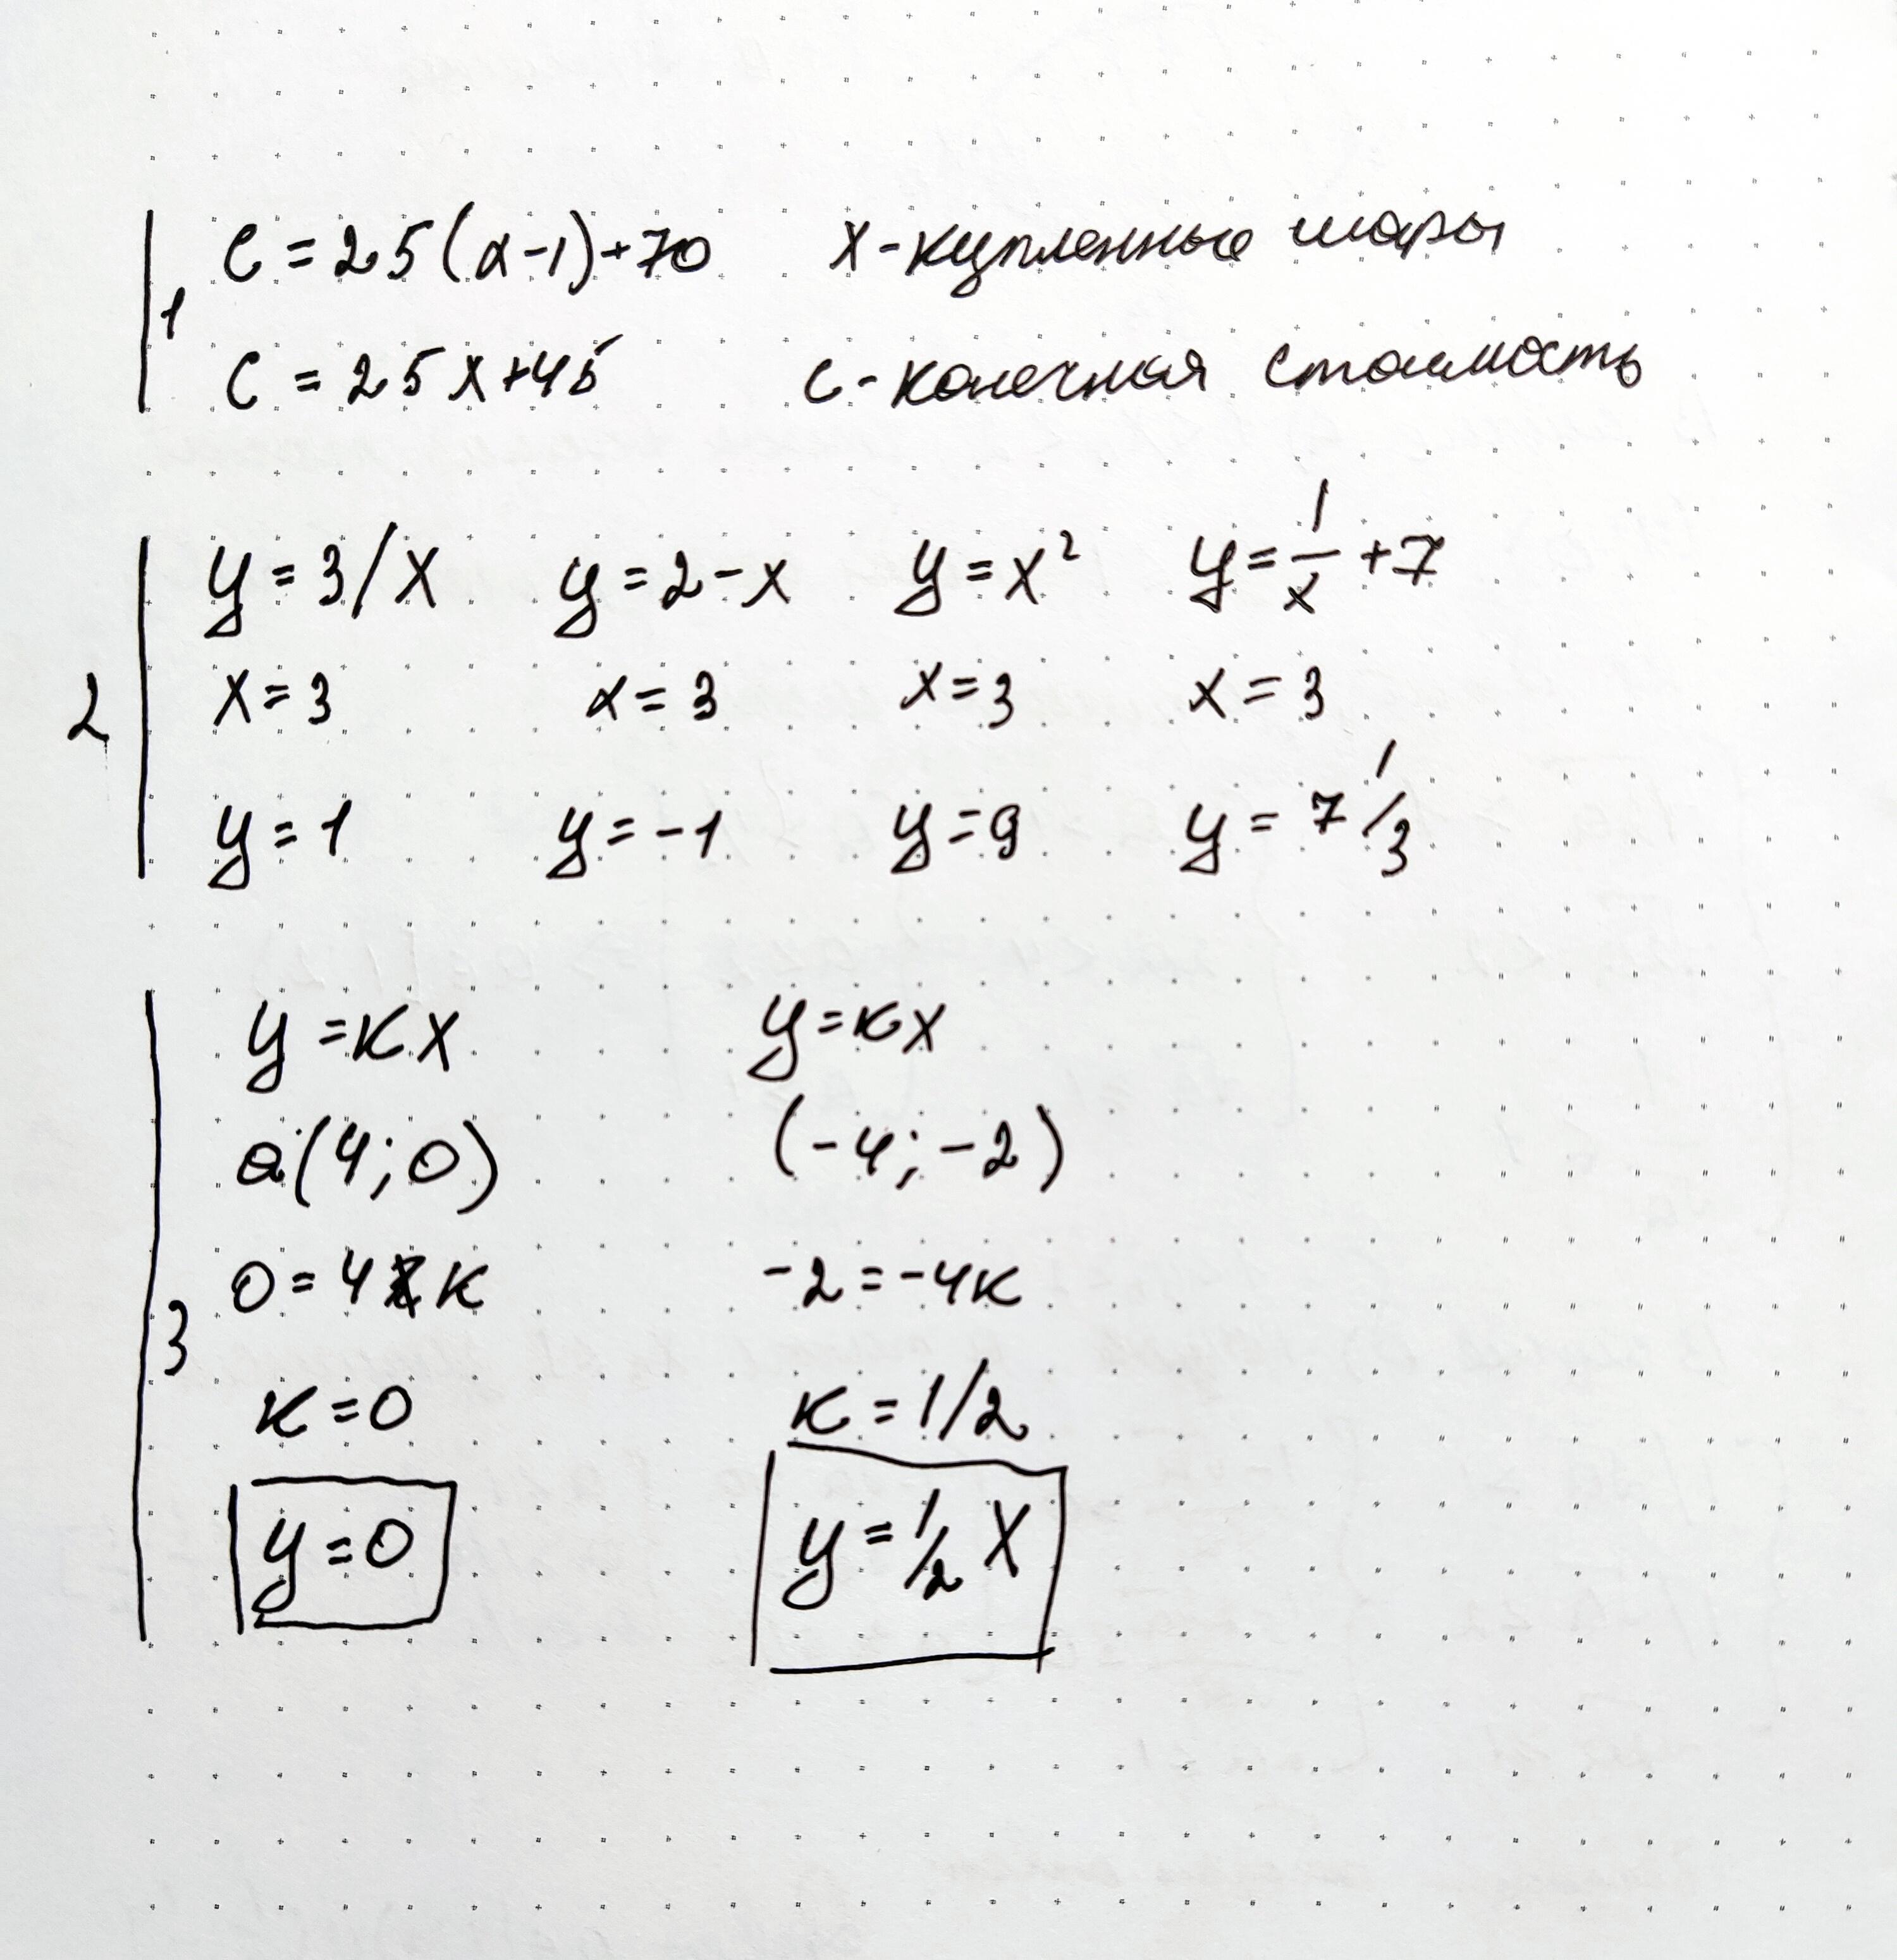 1
C = 25(x-1)+70 x-купленные шары
C = 25x+45 c-конечная стоимость
2
y = 3/x y = 2-x y = x² y = 1/x + 7
x = 3 x = 3 x = 3 x = 3
y = 1 y = -1 y = 9 y = 7 1/3
3
y = кx y = кx
a(4;0) (-4;-2)
0 = 4к -2 = -4к
к = 0 к = 1/2
y = 0 y = 1/2 x